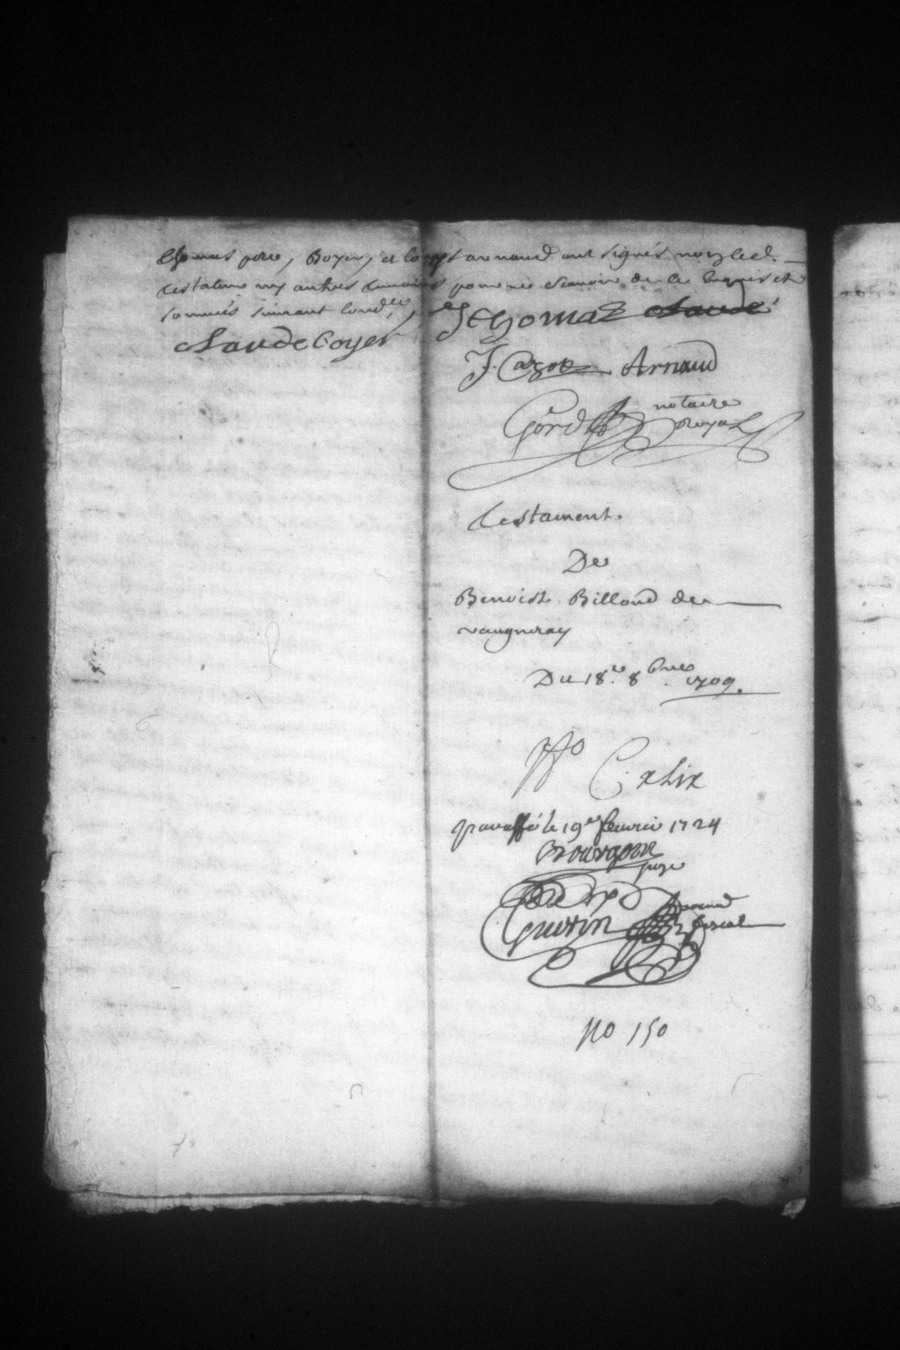 thomas pere, Boyer, et Cozon arnaud ont signés non led.
testateur ny autres temoins pour ne scavoir de ce enquis et
sommés suivant lord.ce
J thomaz claude
claude boyer
J. Cozon Arnaud
notaire
royal
testament
De
Benoist Billoud de
vaugneray
Du 18.e 8bre 1709.
No C. xLix
paraffé le 19e fevrier 1724
Bourgeois
juge
Guerin
No 150